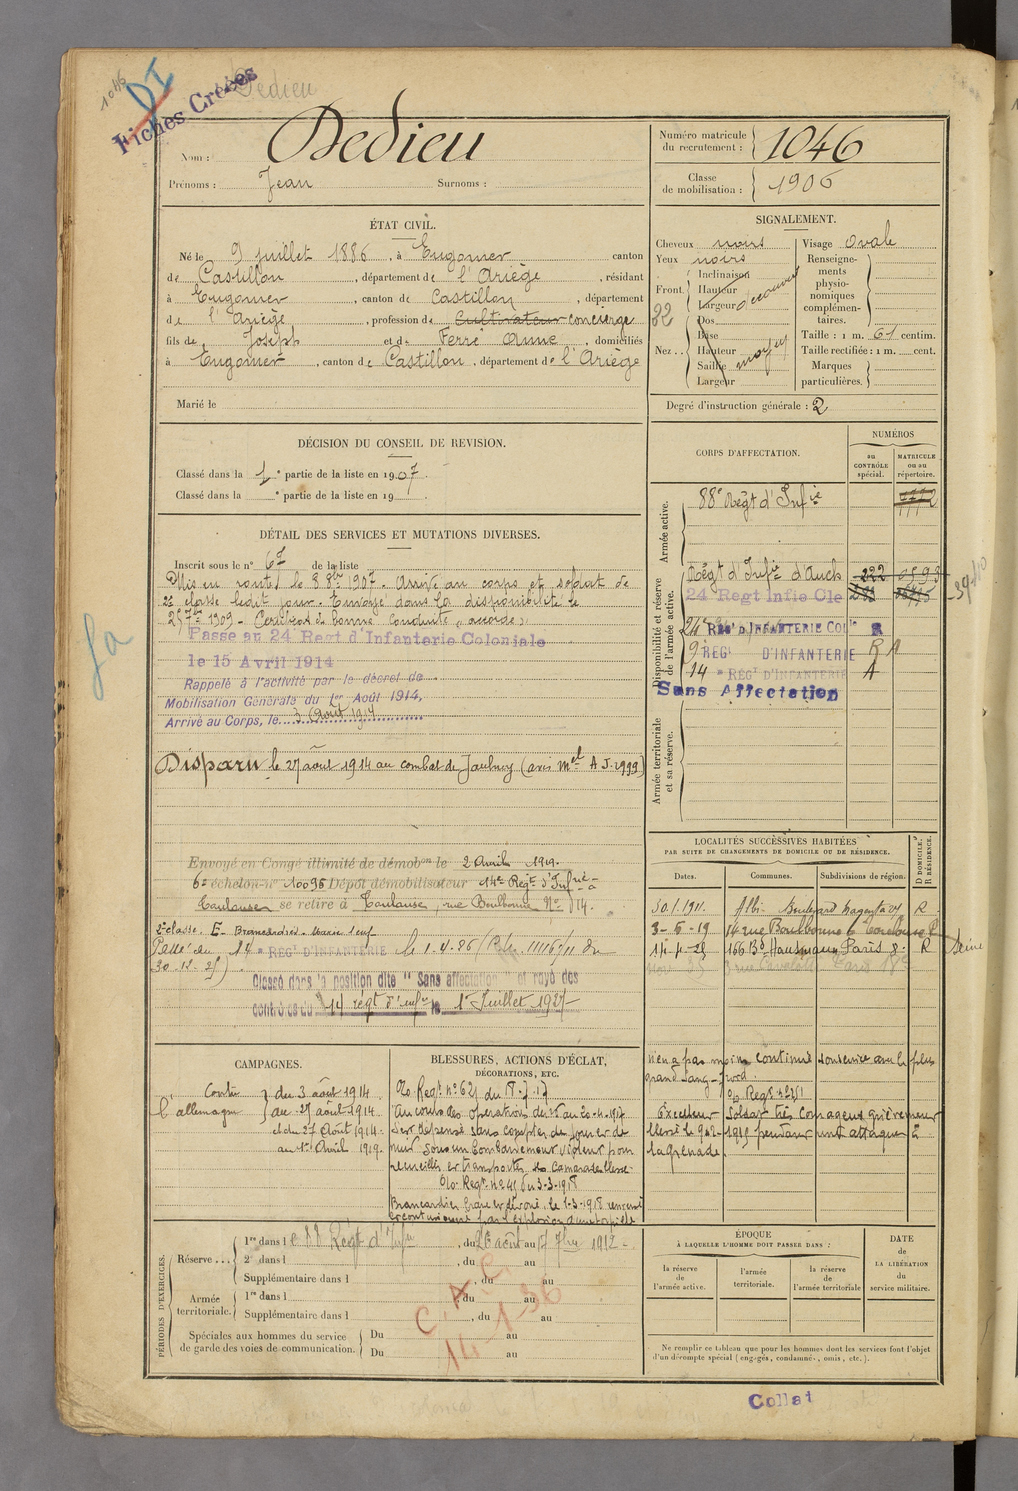 1046
DI
Dedieu
Fiches Créées
Nom : Dedieu
Prénoms : Jean Surnoms :
Numéro matricule du recrutement : 1046
Classe de mobilisation : 1906
ÉTAT CIVIL.
Né le 9 juillet 1886, à Eugomer canton
de Castillon, département de l'Ariège, résidant
à Eugomer, canton de Castillon, département
de l'Ariège, profession de cultivateur concierge
fils de Joseph et de Ferré Anne, domiciliés
à Eugomer, canton de Castillon, département de l'Ariège
Marié le
SIGNALEMENT.
Cheveux noirs
Yeux noirs
Front. Inclinaison
Hauteur
Largeur découvert
Nez.. Dos
Base
Hauteur moyen
Saillie
Largeur
Visage ovale
Renseignements physionomiques complémentaires.
Taille : 1 m. 61 centim.
Taille rectifiée : 1 m. cent.
Marques particulières.
Degré d'instruction générale : 2
DÉCISION DU CONSEIL DE REVISION.
Classé dans la 1e partie de la liste en 1907.
Classé dans la e partie de la liste en 19
DÉTAIL DES SERVICES ET MUTATIONS DIVERSES.
Inscrit sous le n° 67 de la liste
Mis en route le 8 8bre 1907. Arrivé au corps et soldat de
2e classe ledit jour. Envoyé dans la disponibilité le
25 7bre 1909 - Certificat de bonne conduite "accordé".
Passé au 24 Regt d'Infanterie Coloniale
le 15 Avril 1914
Rappelé à l'activité par le décret de
Mobilisation Générale du 1er Août 1914,
Arrivé au Corps, le 3 Août 1914
Disparu le 27 août 1914 au combat de Jaulnay (avis Mel A J. 2993)
Envoyé en Congé illimité de démobon le 2 Avril 1919.
6e échelon n° 10095 Dépôt démobilisateur 14e Regt d'Infrie à
Toulouse se retire à Toulouse, rue Boulbonne N° 14.
Passé du 14e REGt D'INFANTERIE le 1-4-26
30-12-25)
Classé dans la position dite "Sans affectation" et rayé des
contrôles du 14 régt d'infie le 1er Juillet 1927
CORPS D'AFFECTATION.
NUMÉROS
au CONTRÔLE spécial.
MATRICULE ou au répertoire.
Armée active.
88e Régt d'Infie
Disponibilité et réserve de l'armée active.
Régt d'Infie d'Auch 222 0593
24 Regt Infie Cle
24 REGt D'INFANTERIE COLle R
9e REGt D'INFANTERIE R A
14e REGt D'INFANTERIE A
Sans Affectation
Armée territoriale et sa réserve.
LOCALITÉS SUCCESSIVES HABITÉES
PAR SUITE DE CHANGEMENTS DE DOMICILE OU DE RÉSIDENCE.
Dates. Communes. Subdivisions de région. D DOMICILE, R RÉSIDENCE.
30.1.1911. Albi - Boulevard Magenta R
3-5-19 14 rue Boulbonne Toulouse R
14-4-25 166 Bd Hausmann Paris 8e R Seine
CAMPAGNES.
Contre l'allemagne
du 3 août 1914
au 27 août 1914
et du 27 Août 1914
au 1er Avril 1919.
BLESSURES, ACTIONS D'ÉCLAT,
DÉCORATIONS, ETC.
O/o Regt n° 621 du 18-7-17
Au cours des opérations du 16 au 20-4-1917
s'est dépensé sans compter de jour et de
nuit sous un bombardement violent pour
recueillir et transporter ses camarades blessés
O/o Regt n° 241 du 3-3-1918
Brancardier brave et dévoué, le 1-3-1918 renversé
et contusionné par l'explosion d'une torpille
n'en a pas moins continué son service avec le plus
grand sang-froid.
Excellent soldat très courageux grièvement
blessé le pendant une attaque à
la grenade
PÉRIODES D'EXERCICES.
Réserve 1re dans le 88 Régt d'Infie, du 26 août au 17 7bre 1912
2e dans l , du au
Supplémentaire dans l , du au
Armée territoriale. 1re dans l , du au
Supplémentaire dans l , du au
Spéciales aux hommes du service de garde des voies de communication. Du au
Du au
C. A. C.
14-1-36
ÉPOQUE
À LAQUELLE L'HOMME DOIT PASSER DANS :
la réserve de l'armée active.
l'armée territoriale.
la réserve de l'armée territoriale
DATE de LA LIBÉRATION du service militaire.
Ne remplir ce tableau que pour les hommes dont les services font l'objet
d'un décompte spécial (engagés, condamnés, omis, etc.).
Collat